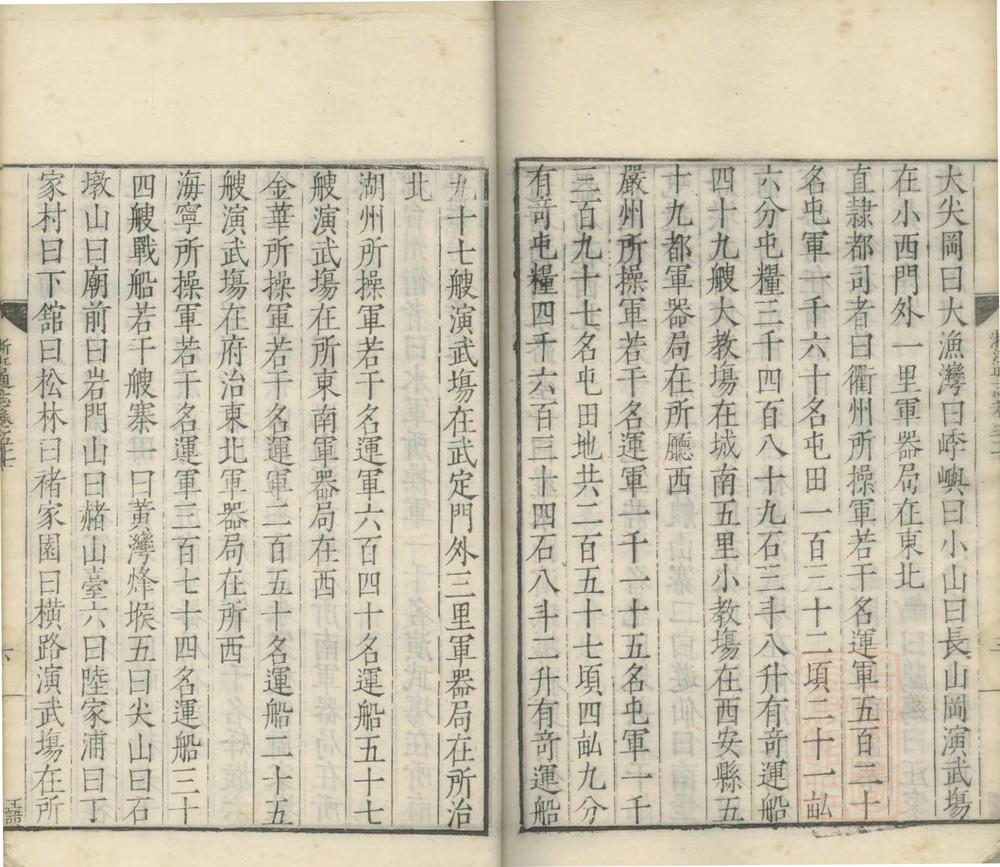 大尖岡曰大漁灣曰㟂嶼曰小山曰長山岡演武塲
在小西門外一里軍器局在東北
直隸都司者曰衢州所操軍若干名運軍五百二十
名屯軍一千六十名屯田一百三十二頃二十一畆
六分屯糧三千四百八十九石三斗八升有奇運船
四十九艘大教塲在城南五里小教塲在西安縣五
十九都軍器局在所廳西
嚴州所操軍若干名運軍一千一十五名屯軍一千
三百九十七名屯田地共二百五十七頃四畆九分
有奇屯糧四千六百三十四石八斗二升有奇運船
九十七艘演武塲在武定門外三里軍器局在所治
北
湖州所操軍若干名運軍六百四十名運船五十七
艘演武塲在所東南軍器局在西
金華所操軍若干名運軍二百五十名運船二十五
艘演武塲在府治東北軍器局在所西
海寧所操軍若干名運軍三百七十四名運船三十
四艘戰船若干艘寨一曰黃灣烽堠五曰尖山曰石
墩山曰廟前曰岩門山曰赭山臺六曰陸家浦曰丁
家村曰下舘曰松林曰褚家園曰横路演武塲在所
浙江通志卷之五十七
六